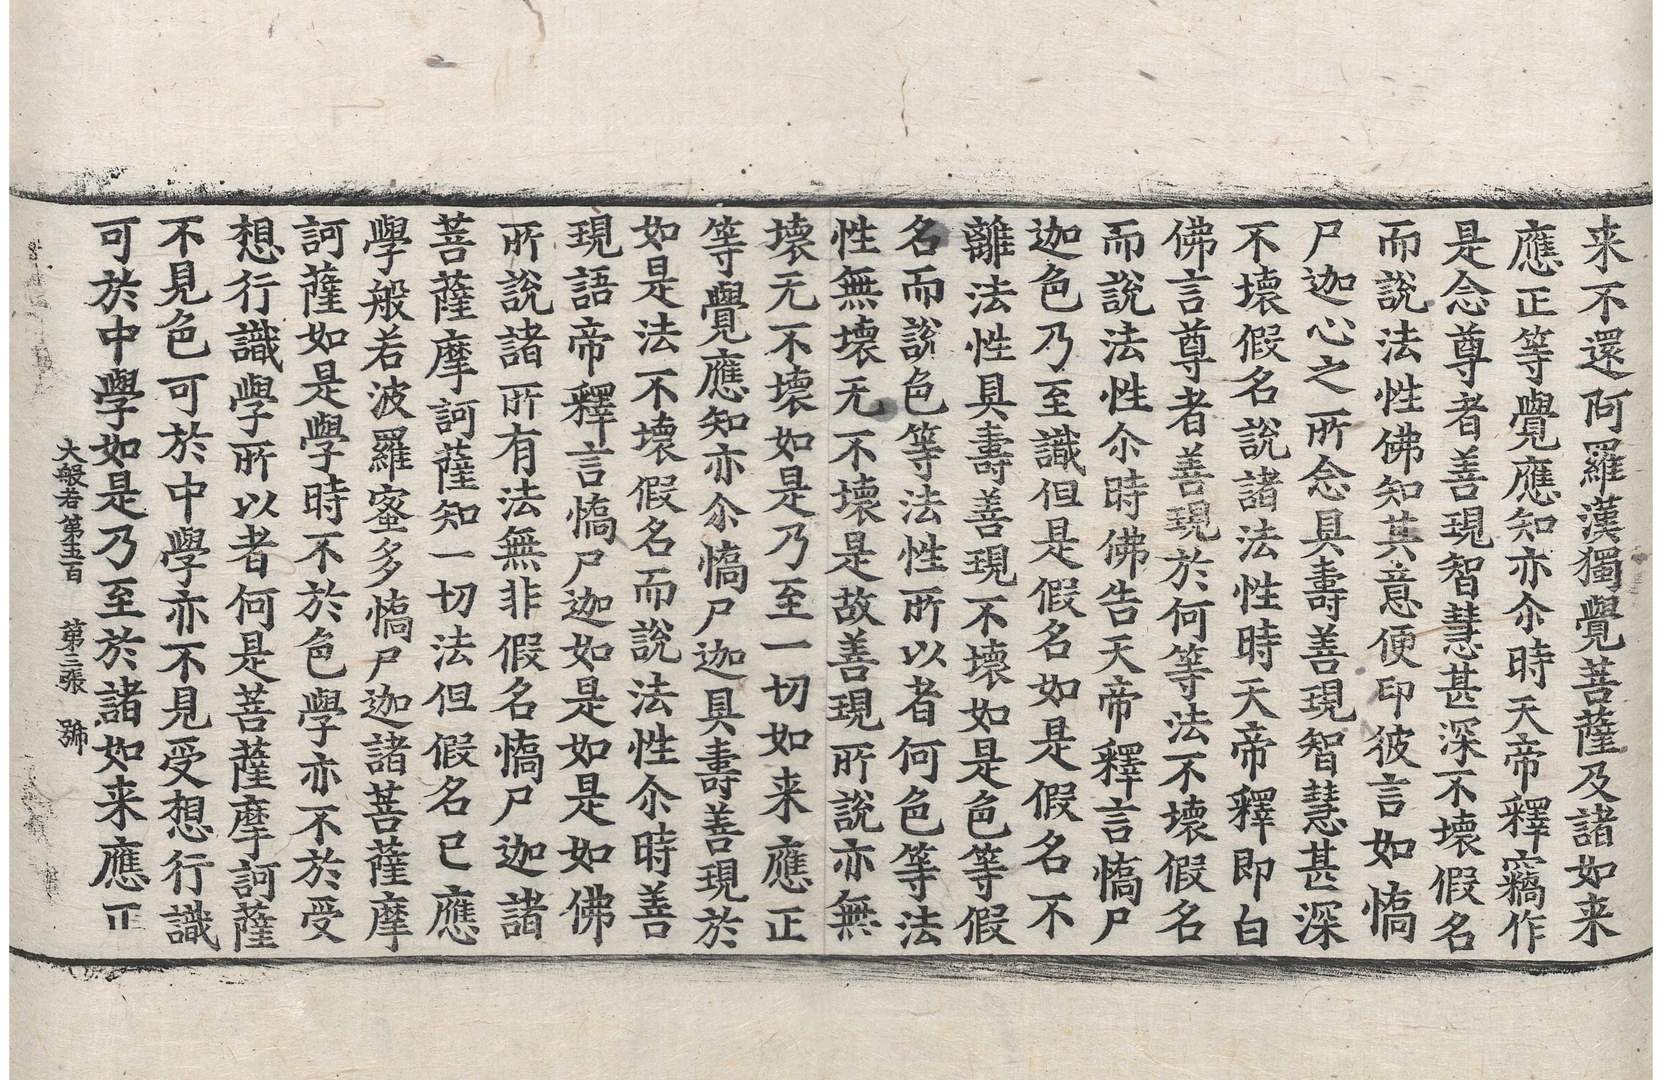 来不還阿羅漢獨覺菩薩及諸如来
應正等覺應知亦尒時天帝釋竊作
是念尊者善現智慧甚深不壞假名
而說法性佛知其意便印彼言如憍
尸迦心之所念具壽善現智慧甚深
不壞假名說諸法性時天帝釋即白
佛言尊者善現於何等法不壞假名
而說法性尒時佛告天帝釋言憍尸
迦色乃至識但是假名如是假名不
離法性具壽善現不壞如是色等假
名而說色等法性所以者何色等法
性無壞无不壞是故善現所說亦無
壞无不壞如是乃至一切如来應正
等覺應知亦尒憍尸迦具壽善現於
如是法不壞假名而說法性尒時善
現語帝釋言憍尸迦如是如是如佛
所說諸所有法無非假名憍尸迦諸
菩薩摩訶薩知一切法但假名已應
學般若波羅蜜多憍尸迦諸菩薩摩
訶薩如是學時不於色學亦不於受
想行識學所以者何是菩薩摩訶薩
不見色可於中學亦不見受想行識
可於中學如是乃至於諸如来應正
大般若第五百 第三張 號